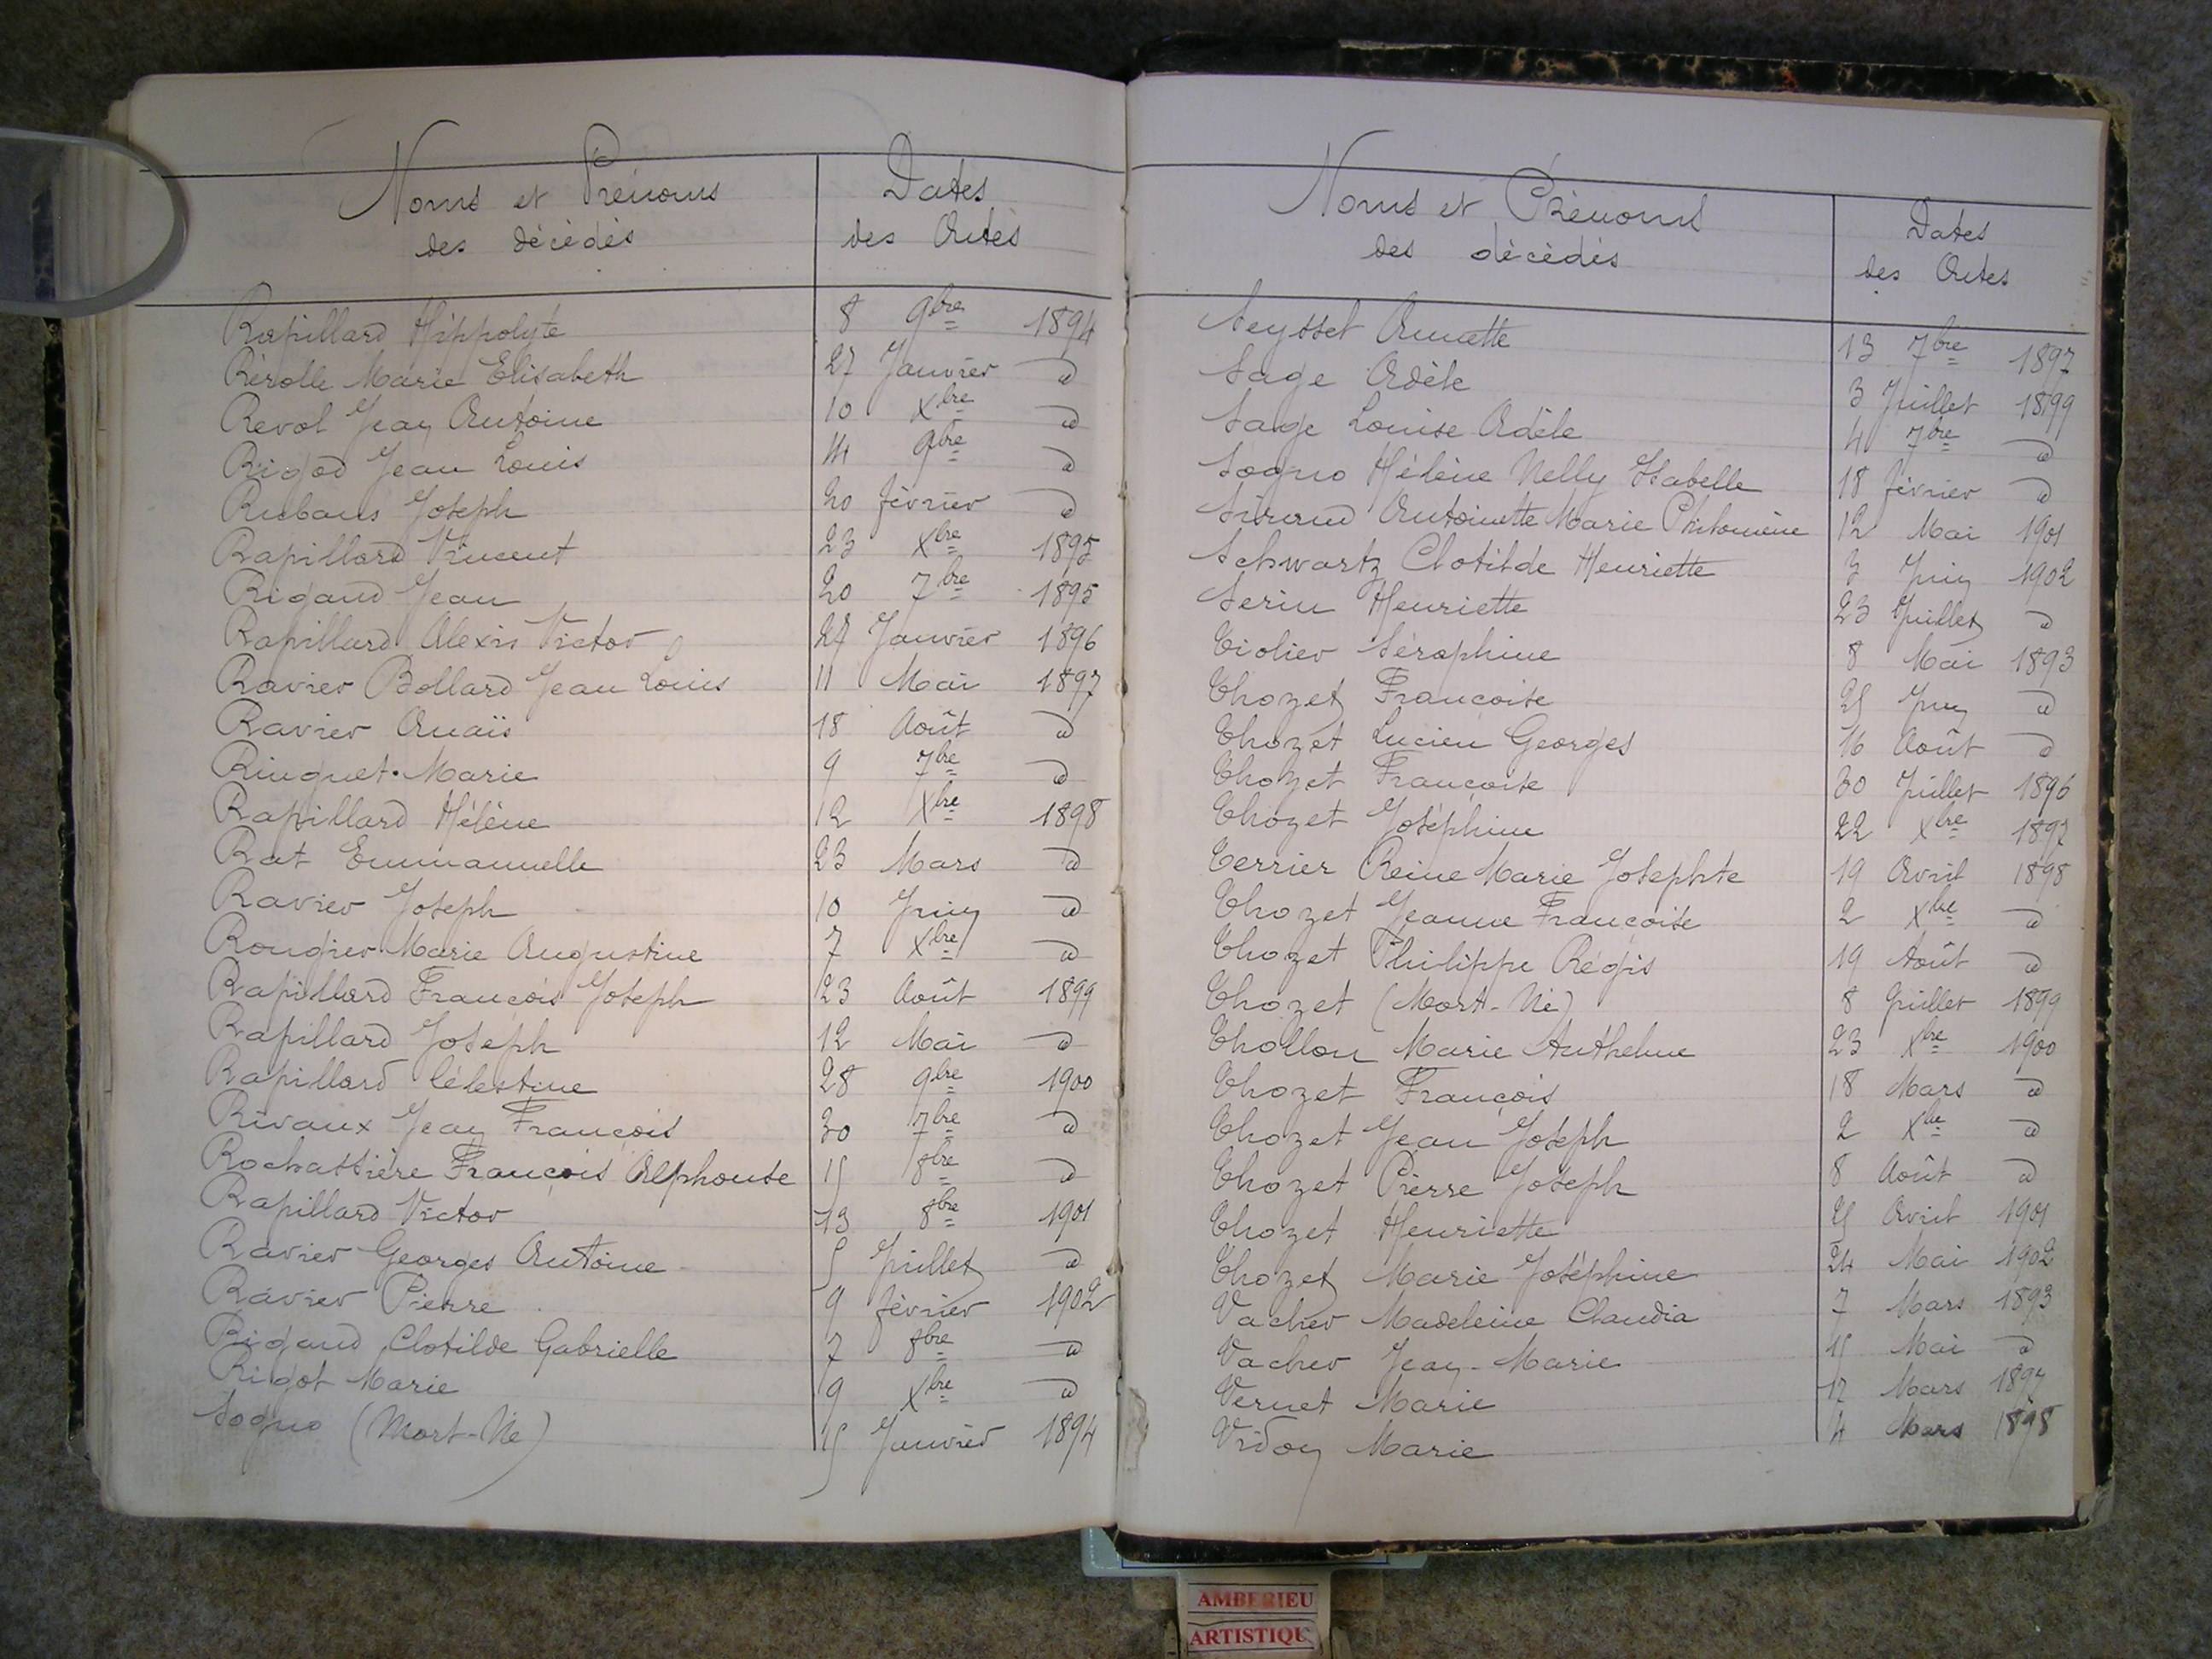 Noms et Prénoms
des décédés
Dates
des Actes
Rapillard Hippolyte 8 9bre 1894
Rérolle Marie Elisabeth 27 Janvier d
Revol Jean Antoine 10 Xbre d
Rigod Jean Louis 14 9bre d
Rubaus Joseph 20 février d
Rapillard Vincent 23 Xbre 1895
Rigaud Jean 20 7bre 1895
Rapillard Alexis Victor 27 Janvier 1896
Ravier Bollard Jean Louis 11 Mai 1897
Ravier Anaïs 18 Août d
Ringuet Marie 9 7bre d
Rapillard Hélène 12 Xbre 1898
Rat Emmanuelle 23 Mars d
Ravier Joseph 10 Juin d
Rougier Marie Augustine 7 Xbre d
Rapillard François Joseph 23 Août 1899
Rapillard Joseph 12 Mai d
Rapillard Célestine 28 9bre 1900
Rivaux Jean François 30 7bre d
Rochassière François Alphonse 15 8bre d
Rapillard Victor 13 8bre 1901
Ravier Georges Antoine 5 Juillet d
Ravier Pierre 9 février 1902
Rigaud Clotilde Gabrielle 7 8bre d
Rigot Marie 9 Xbre d
Sogno (Mort-Né) 15 Janvier 1894
Noms et Prénoms
des décédés
Dates
des Actes
Seysset Annette 13 7bre 1897
Sage Adèle 3 Juillet 1899
Sage Louise Adèle 4 7bre d
Sogno Hélène Nelly Isabelle 18 février d
Siraud Antoinette Marie Philomène 12 Mai 1901
Schwartz Clotilde Henriette 3 Juin 1902
Serin Henriette 23 Juillet d
Tiolier Séraphine 8 Mai 1893
Thozet Françoise 25 Juin d
Thozet Lucien Georges 16 Août d
Thozet Françoise 30 Juillet 1896
Thozet Joséphine 22 Xbre 1897
Terrier Reine Marie Josephte 19 Avril 1898
Thozet Jeanne Françoise 2 Xbre d
Thozet Philippe Régis 19 Août d
Thozet (Mort-Né) 8 Juillet 1899
Thollon Marie Anthelme 23 Xbre 1900
Thozet François 18 Mars d
Thozet Jean Joseph 2 Xbre d
Thozet Pierre Joseph 8 Août d
Thozet Henriette 25 Avril 1901
Thozet Marie Joséphine 24 Mai 1902
Vacher Madeleine Claudia 7 Mars 1893
Vacher Jean-Marie 15 Mai d
Vernet Marie 17 Mars 1897
Vidon Marie 4 Mars 1898
AMBERIEU
ARTISTIQU